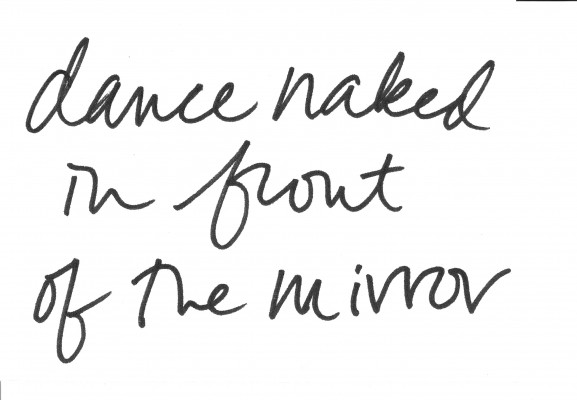 dance naked
in front
of the mirror